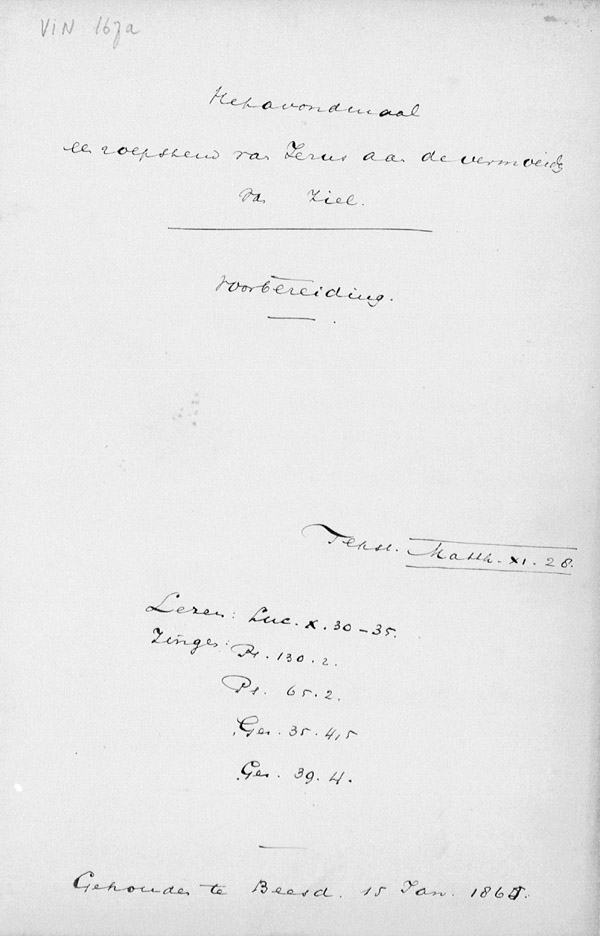 VIN 167a
Het avondmaal
een roepstem van Jezus aan de vermoeide
van Ziel.
Voorbereiding.
Tekst. Matth. XI. 28.
Lezen: Luc. X. 30-35.
Zingen: Ps. 130. 2.
Ps. 65. 2.
Gez. 35. 4,5
Gez. 39. 4.
Gehouden te Beesd. 15 Jan. 1865.